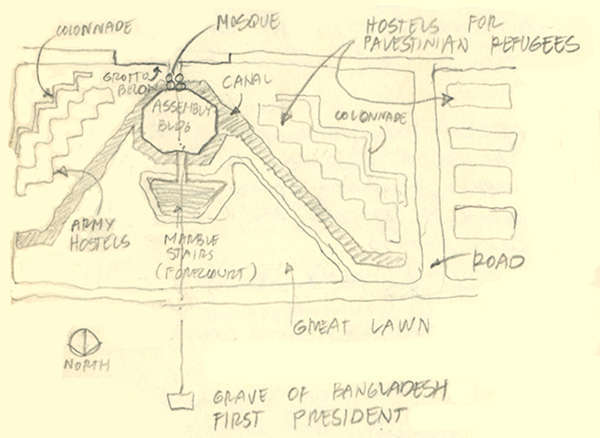 COLONNADE
MOSQUE
HOSTELS FOR
PALESTINIAN REFUGEES
GROTTO
BELOW
CANAL
ASSEMBLY
BLDG
COLONNADE
ARMY
HOSTELS
MARBLE
STAIRS
(FORECOURT)
ROAD
GREAT LAWN
NORTH
GRAVE OF BANGLADESH
FIRST PRESIDENT